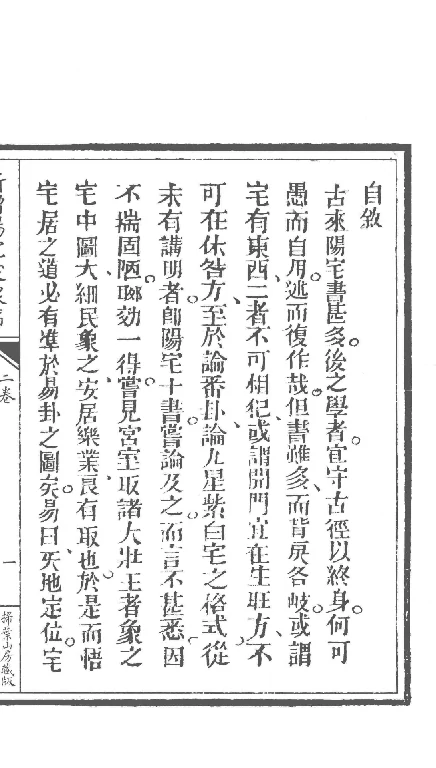 自敘
古來陽宅書甚多後之學者宜守古徑以終身何可
愚而自用述而復作哉但書雖多而背戾各岐或謂
宅有東西二者不可相犯或謂開門宜在生旺方不
可在休咎方至於論番卦論九星紫白宅之格式從
未有講明者卽陽宅十書嘗論及之而言不甚悉因
不揣固陋聊効一得嘗見宮室取諸大壯王者象之
宅中圖大細民象之安居樂業良有取也於是而悟
宅居之道必有準於易卦之圖矣易曰天地定位宅
二卷
一
掃葉山房藏版